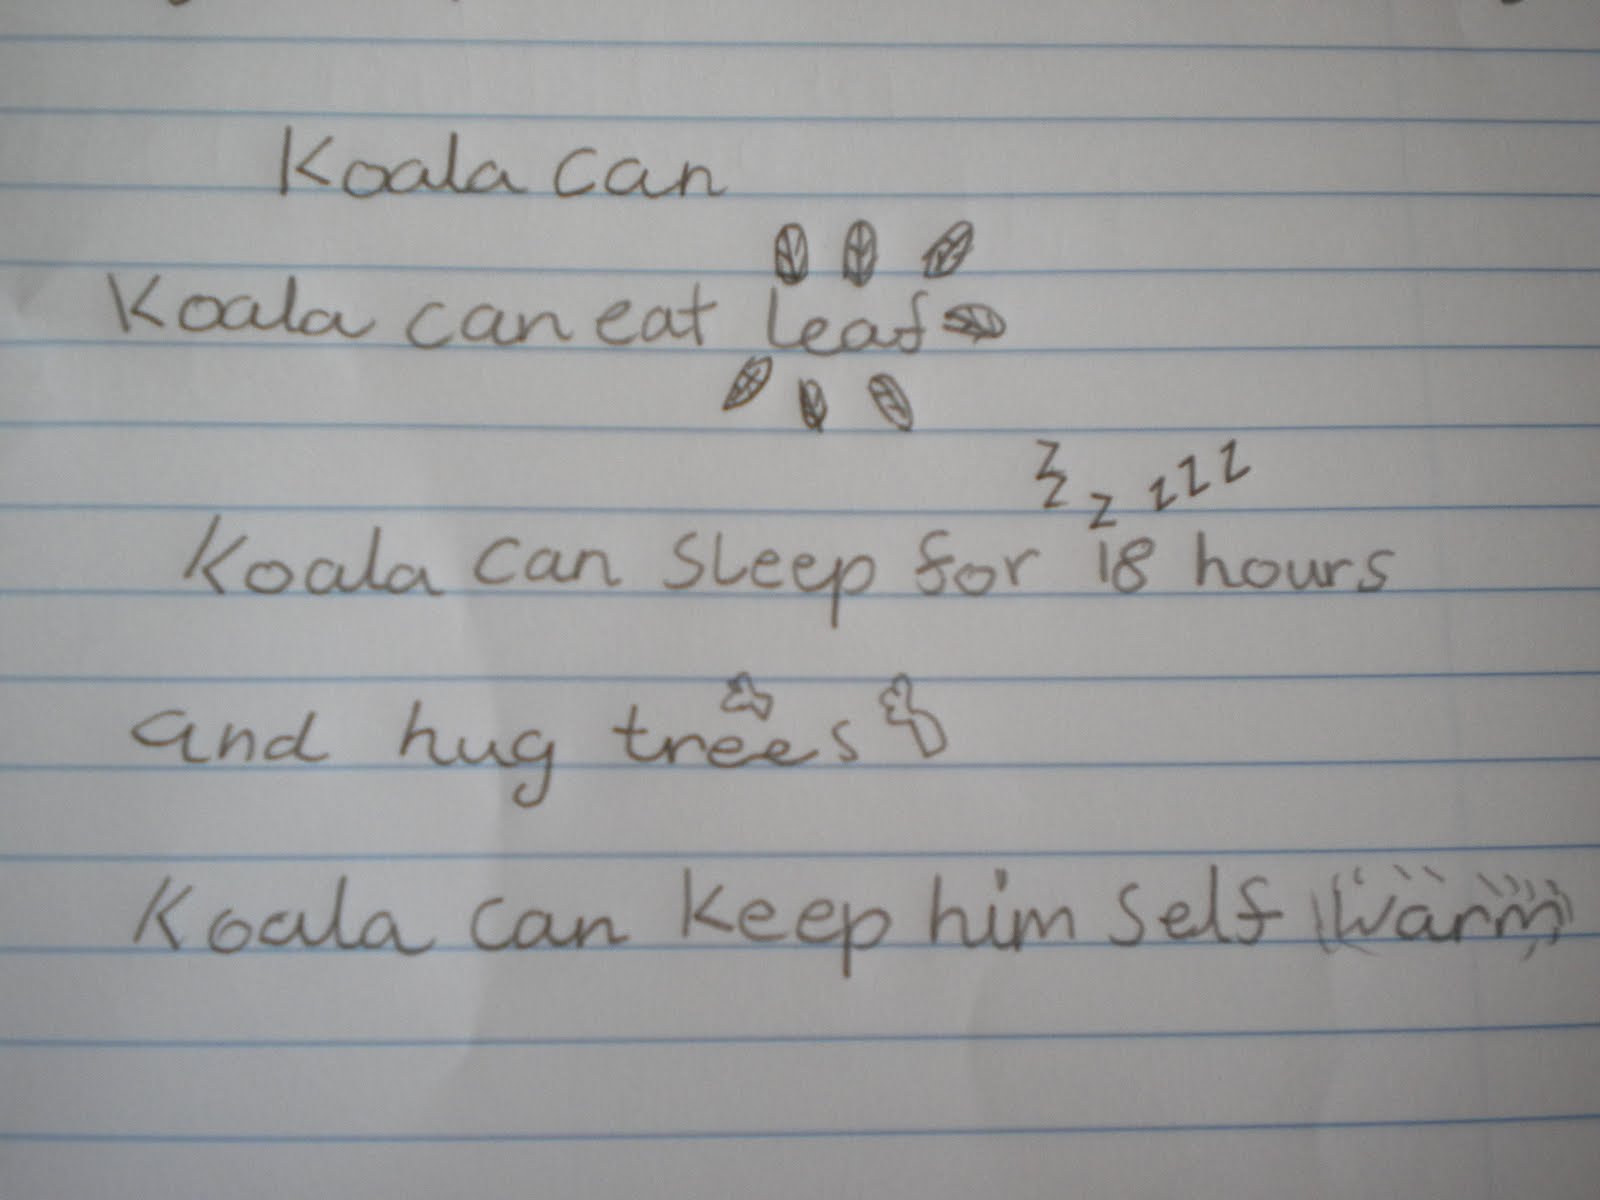 Koala can
Koala can eat leaf
zzzzz
Koala can sleep for 18 hours
and hug trees
Koala can keep him self warm